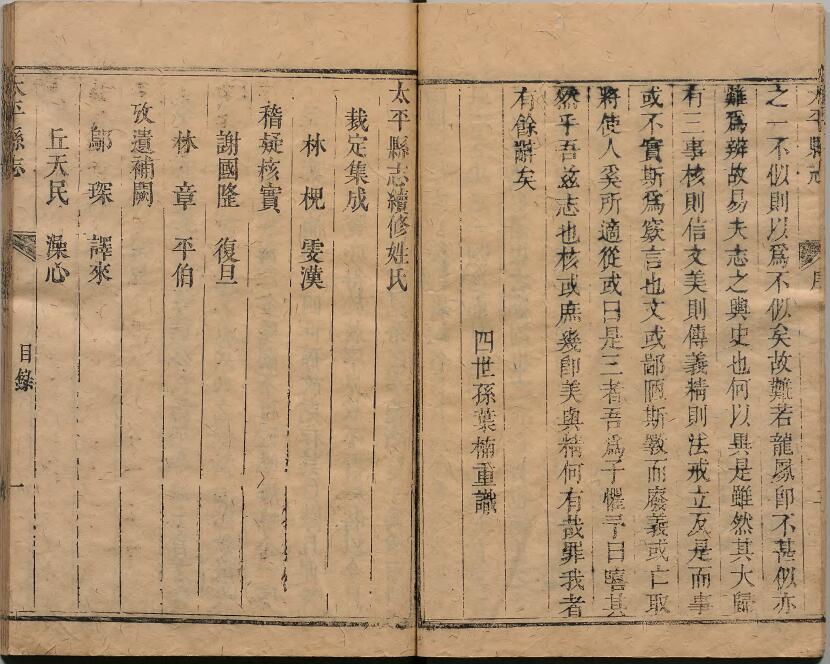 太平縣志
序
二
之一不似則以爲不似矣故難若龍鳳卽不甚似亦
難爲辨故易夫志之與史也何以異是雖然其大歸
有三事核則信文美則傳義精則法戒立反是而事
或不實斯爲窽言也文或鄙陋斯斁而廢義或亡取
將使人奚所適從或曰是三者吾爲子懼予曰嘻其
然乎吾兹志也核或庶幾卽美與精何有哉罪我者
有餘辭矣
四世孫葉楠重識
太平縣志續修姓氏
裁定集成
林槐雯漢
稽疑核實
謝國隆復旦
林章平伯
攷遺補闕
鄔琛譯來
丘天民澡心
太平縣志
目錄
一